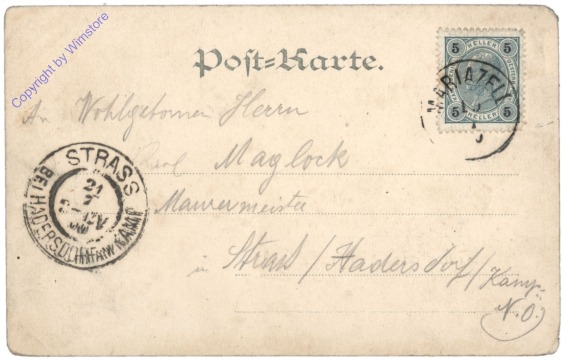 Copyright by Wimstore
Post=Karte.
5 HELLER 5
5 HELLER 5
MARIAZELL
An Wohlgebornen Herrn
Karl Maglock
Maurermeister
in Strass / Hadersdorf / Kamp
N.Ö.
STRASS
BEI HADERSDORF AM KAMP
21
7